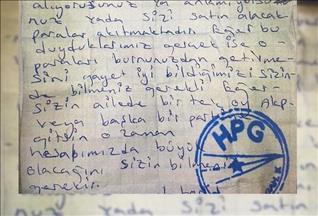 alıyorsunuz ya anlamıyorsu
nuz yada sizi satın alacak
paralar akıtmaktadır. Eğer bu
duyduklarımız gerçekt ise o
paraları burnunuzdan getirme-
sini gayet iyi bildiğimizi sizin-
de bilmeniz gerekli Eğer-
sizin ailede bir tek oy Akp-
veya başka bir par
gitsin o zaman
hesapımızda büyü
olacağını sizin bilme
gerekir.
HPG
nuz yada sizi satın